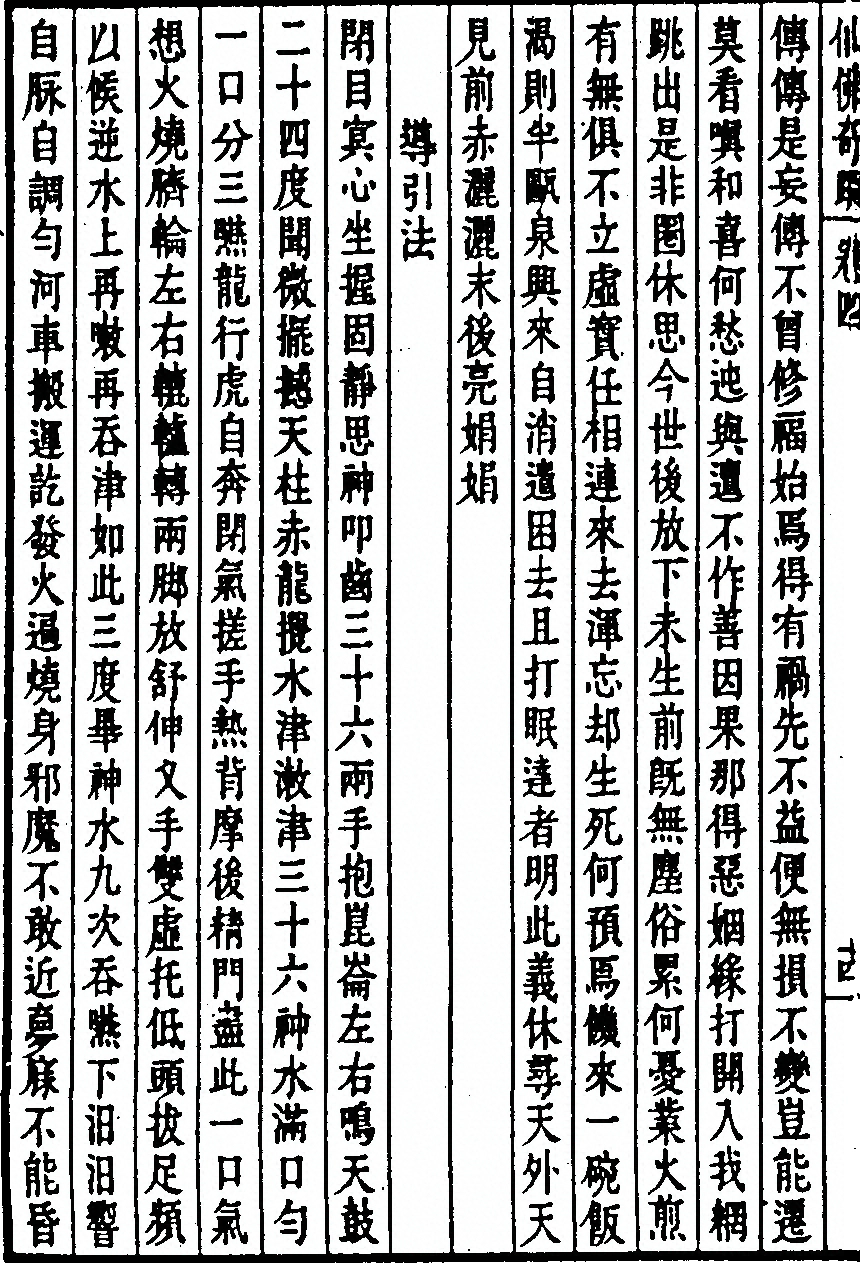 仙佛奇蹤 卷四
傳傳是妄傳不曾修福始焉得有禍先不益便無損不變豈能遷
莫看嗔和喜何愁迍與邅不作善因果那得惡姻緣打開人我網
跳出是非圈休思今世後放下未生前既無塵俗累何憂業火煎
有無俱不立虛實任相連來去渾忘却生死何預焉饑來一碗飯
渴則半甌泉興來自消遣困去且打眠達者明此義休尋天外天
見前赤灑灑末後亮娟娟
導引法
閉目冥心坐握固靜思神叩齒三十六兩手抱崑崙左右鳴天鼓
二十四度聞微擺撼天柱赤龍攪水津漱津三十六神水滿口勻
一口分三嚥龍行虎自奔閉氣搓手熱背摩後精門盡此一口氣
想火燒臍輪左右轆轤轉兩脚放舒伸叉手雙虛托低頭拔足頻
以候逆水上再嗽再吞津如此三度畢神水九次吞嚥下汩汩響
自脉自調勻河車搬運訖發火遍燒身邪魔不敢近夢寐不能昏